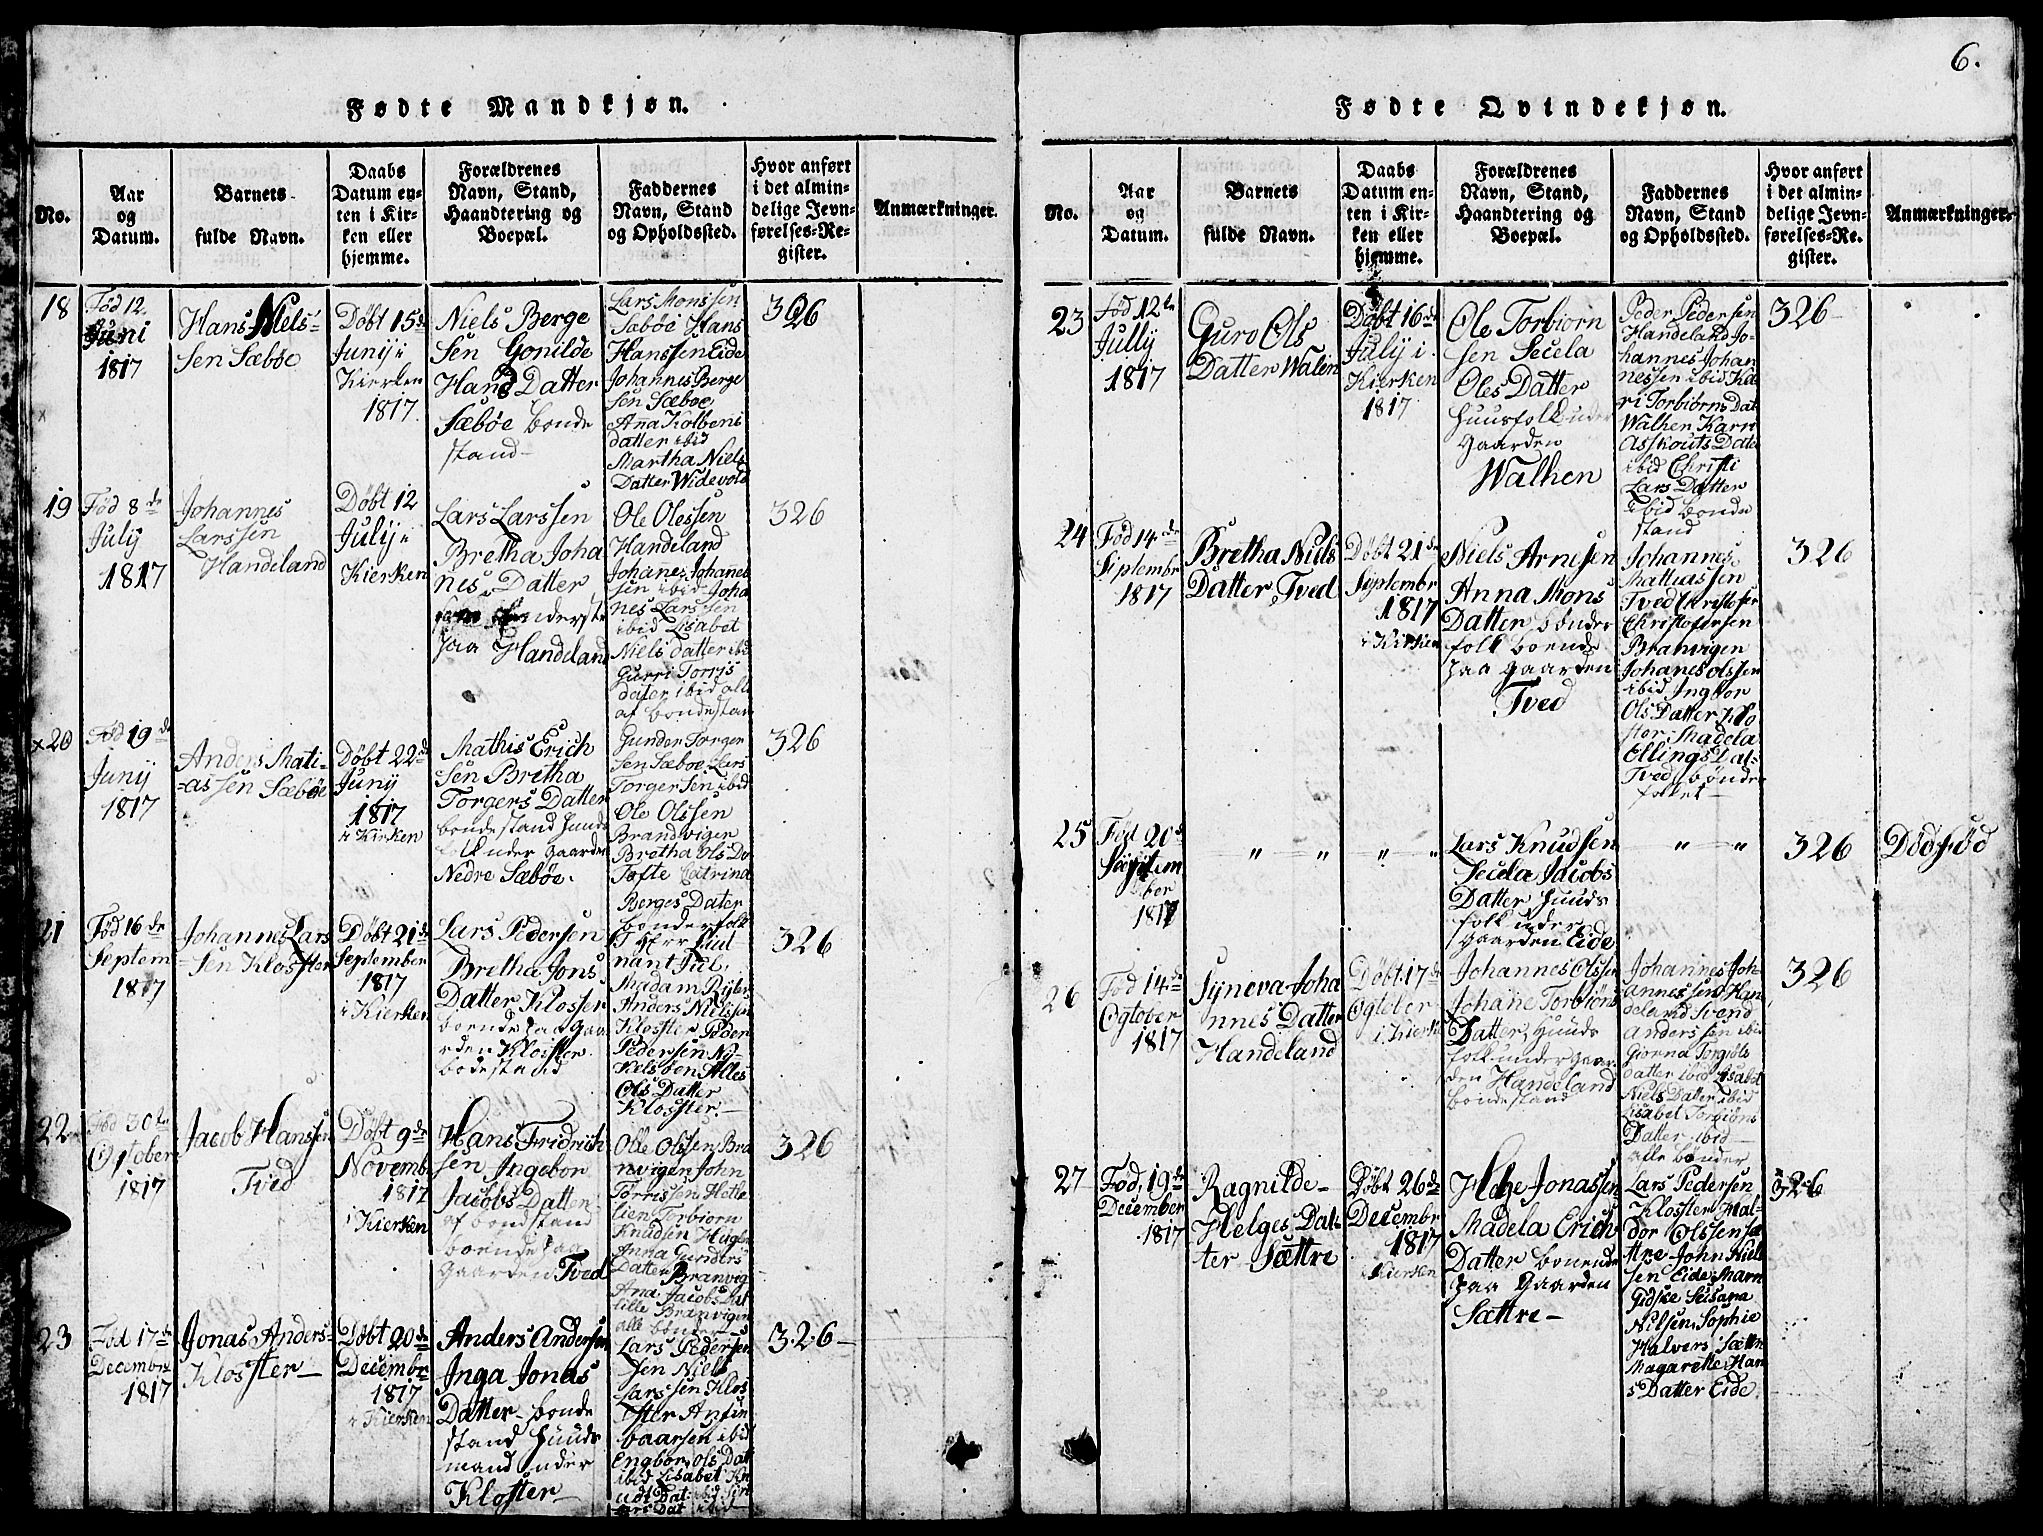 6.
Fødte Mandkjøn.
No.
Aar
og
Datum.
Barnets
fulde Navn.
Daabs
Datum en-
ten i Kir-
ken eller
hjemme.
Forældrenes
Navn, Stand,
Haandtering og
Boepæl.
Faddernes
Navn, Stand
og Opholdssted.
Hvor anført
i det almin-
delige Jevn-
førelses-Re-
gister.
Anmærkninger.
18
Fød 12.
Juni
1817
Hans Niels-
sen Sæbøe
Døbt 15de
Junij i
Kierken
1817
Niels Berge
sen Gonilde
Hans Datter
Sæbøe bonde
stand
Lars Monssen
Sæbøe Hans
Hanssen Eide
Johannes Berge
sen Sæboe
Ana Kolbens
datter ibid
Martha Niels
Datter Widevold
326
19
Fød 8de
July
1817
Johannes
Larssen
Handeland
Døbt 12
Julij i
Kierken
Lars Larssen
Bretha Joha
nes Datter
paa Handeland
Ole Olessen
Handeland
Johanes Johanes
sen ibid Joha
nes Larssen
ibid Lisabet
Niels datter ibid
Gurri Torris
dater ibid alle
af bondestan
326
x20
Fød 19de
Junij
1817
Anders Mati-
assen Sæbøe
Døbt 22de
Junij
1817
i Kirken
Mathis Erich
sen Bretha
Torgers Datter
bondestand Huus
folk under gaarden
Nedre Sæbøe.
Gunder Torger
sen Sæboe Lars
Torgersen ibid
Ole Olssen
Brandvigen
Bretha Ols Da
Tofte Catrina
Berges Dater
bonderfolk
326
21
Fød 16de
Septem
1817
Johannes Lars
sen Kloster
Døbt 21de
September
1817
i Kierken
Lars Pedersen
Bretha Jons
Datter Kloster
boende paa Gaa
rden Kloister
bodestand
Herr Leut
nant Jul.
Madam
Anders Nielssen
Kloster Peder
Pedersen Ny-
Alles
Ols Datter
Kloster.
326
22
Fød 30te
October
1817
Jacob Hanssen
Tved
Døbt 9de
Novemb
1817
i Kierken
Hans Fridrich
sen Ingebor
Jacobs Datter
af bondstand
boende paa
Gaarden Tved
Olle Olssen Bra
nvigen John
Torrissen Hette
lien Torbiorn
Knudsen
Anna Gunders
Datter Branvig
Ana Jacobs Dat
Lille Branvigen
alle bønder
326
23
Fød 17de
Decembr
1817
Jonas Anders-
Kloster
Døbt 20de
Decembr
1817
i Kierken
Anders Andersen
Inga Jonas
Datter bonde
stand Huuds
mand under
Kloster
Lars Pedersen
sen Niels
Larssen Klos
ster Anfin
baarsen ibid
Engbor Ols Dat
ibid Lisabet Kn
udt Dat: ibid
Lars Dat ibid
326
Fødte Qvindekjøn.
No.
Aar
og
Datum.
Barnets
fulde Navn.
Daabs
Datum en-
ten i Kir-
ken eller
hjemme.
Forældrenes
Navn, Stand,
Haandtering og
Boepæl.
Faddernes
Navn, Stand
og Opholdssted.
Hvor anført
i det almin-
delige Jevn-
førelses-Re-
gister.
Anmærkninger.
23
Fød 12te
Jully
1817
Guro Ols
Datter Walen
Døbt 16de
July i
Kierken
1817
Ole Torbiorn
sen Secela
Oles Datter
huusfolk under
gaarden
Walhen
Peder Pedersen
Handeland Jo-
hannes Johan
nessen ibid Ka
ri Torbiørns Dat
Walhen Karri
Datter
ibid Christi
Lars Datter
ibid bonde
stand
326
24
Fød 14de
Septembr
1817
Bretha Niels
Datter Tved
Døbt 21de
Septembr
1817
i Kirken
Niels Arnesen
Anna Mons
Datter bønder
folk boende
paa gaarden
Tved
Johannes
Mattiassen
Tved Christofer
Christofersen
Branvigen
Johanes Olssen
ibid Ingbor
Ols Datter Klo
ster Madela
Ellings Dat-
Tved bønder
folket
326
25
Fød 20de
Septem
ber
1817
" " " "
Lars Knudsen
Secela Jacobs
Datter huuds
folk under
gaarden Eide
" "
326
Dødfød
26
Fød 14de
Ogtober
1817
Syneva Joha
nnes Datter
Handeland
Døbt 17de
Ogtober
i Kierk
Johannes Olssen
Johane Torbiøns
Datter Huuds
folk under gaar
den Handeland
bondestand
Johannes Joh-
annessen Han
deland Svend
Anderssen ibid
Giorna Torgiøls
Datter ibid Lisabet
Niels Datter ibid
Lisabet Torbiøns
Datter ibid
alle bønder
326
27
Fød 19de
December
1817
Ragnilde
Helges Dat-
ter Sættre
Døbt 26de
Decembr
1817
i Kierken
Helge Jonassen
Madela Erich
Datter bonende
paa Gaarden
Sættre
Lars Pedersen
Kloster Hal-
dor Olssen sæ
ttre John Niel
sen Eide Marn
Gidske Sussana
Nilsen Sophie
Halvers Sættre
Magarette Han
s Datter Eide.
326